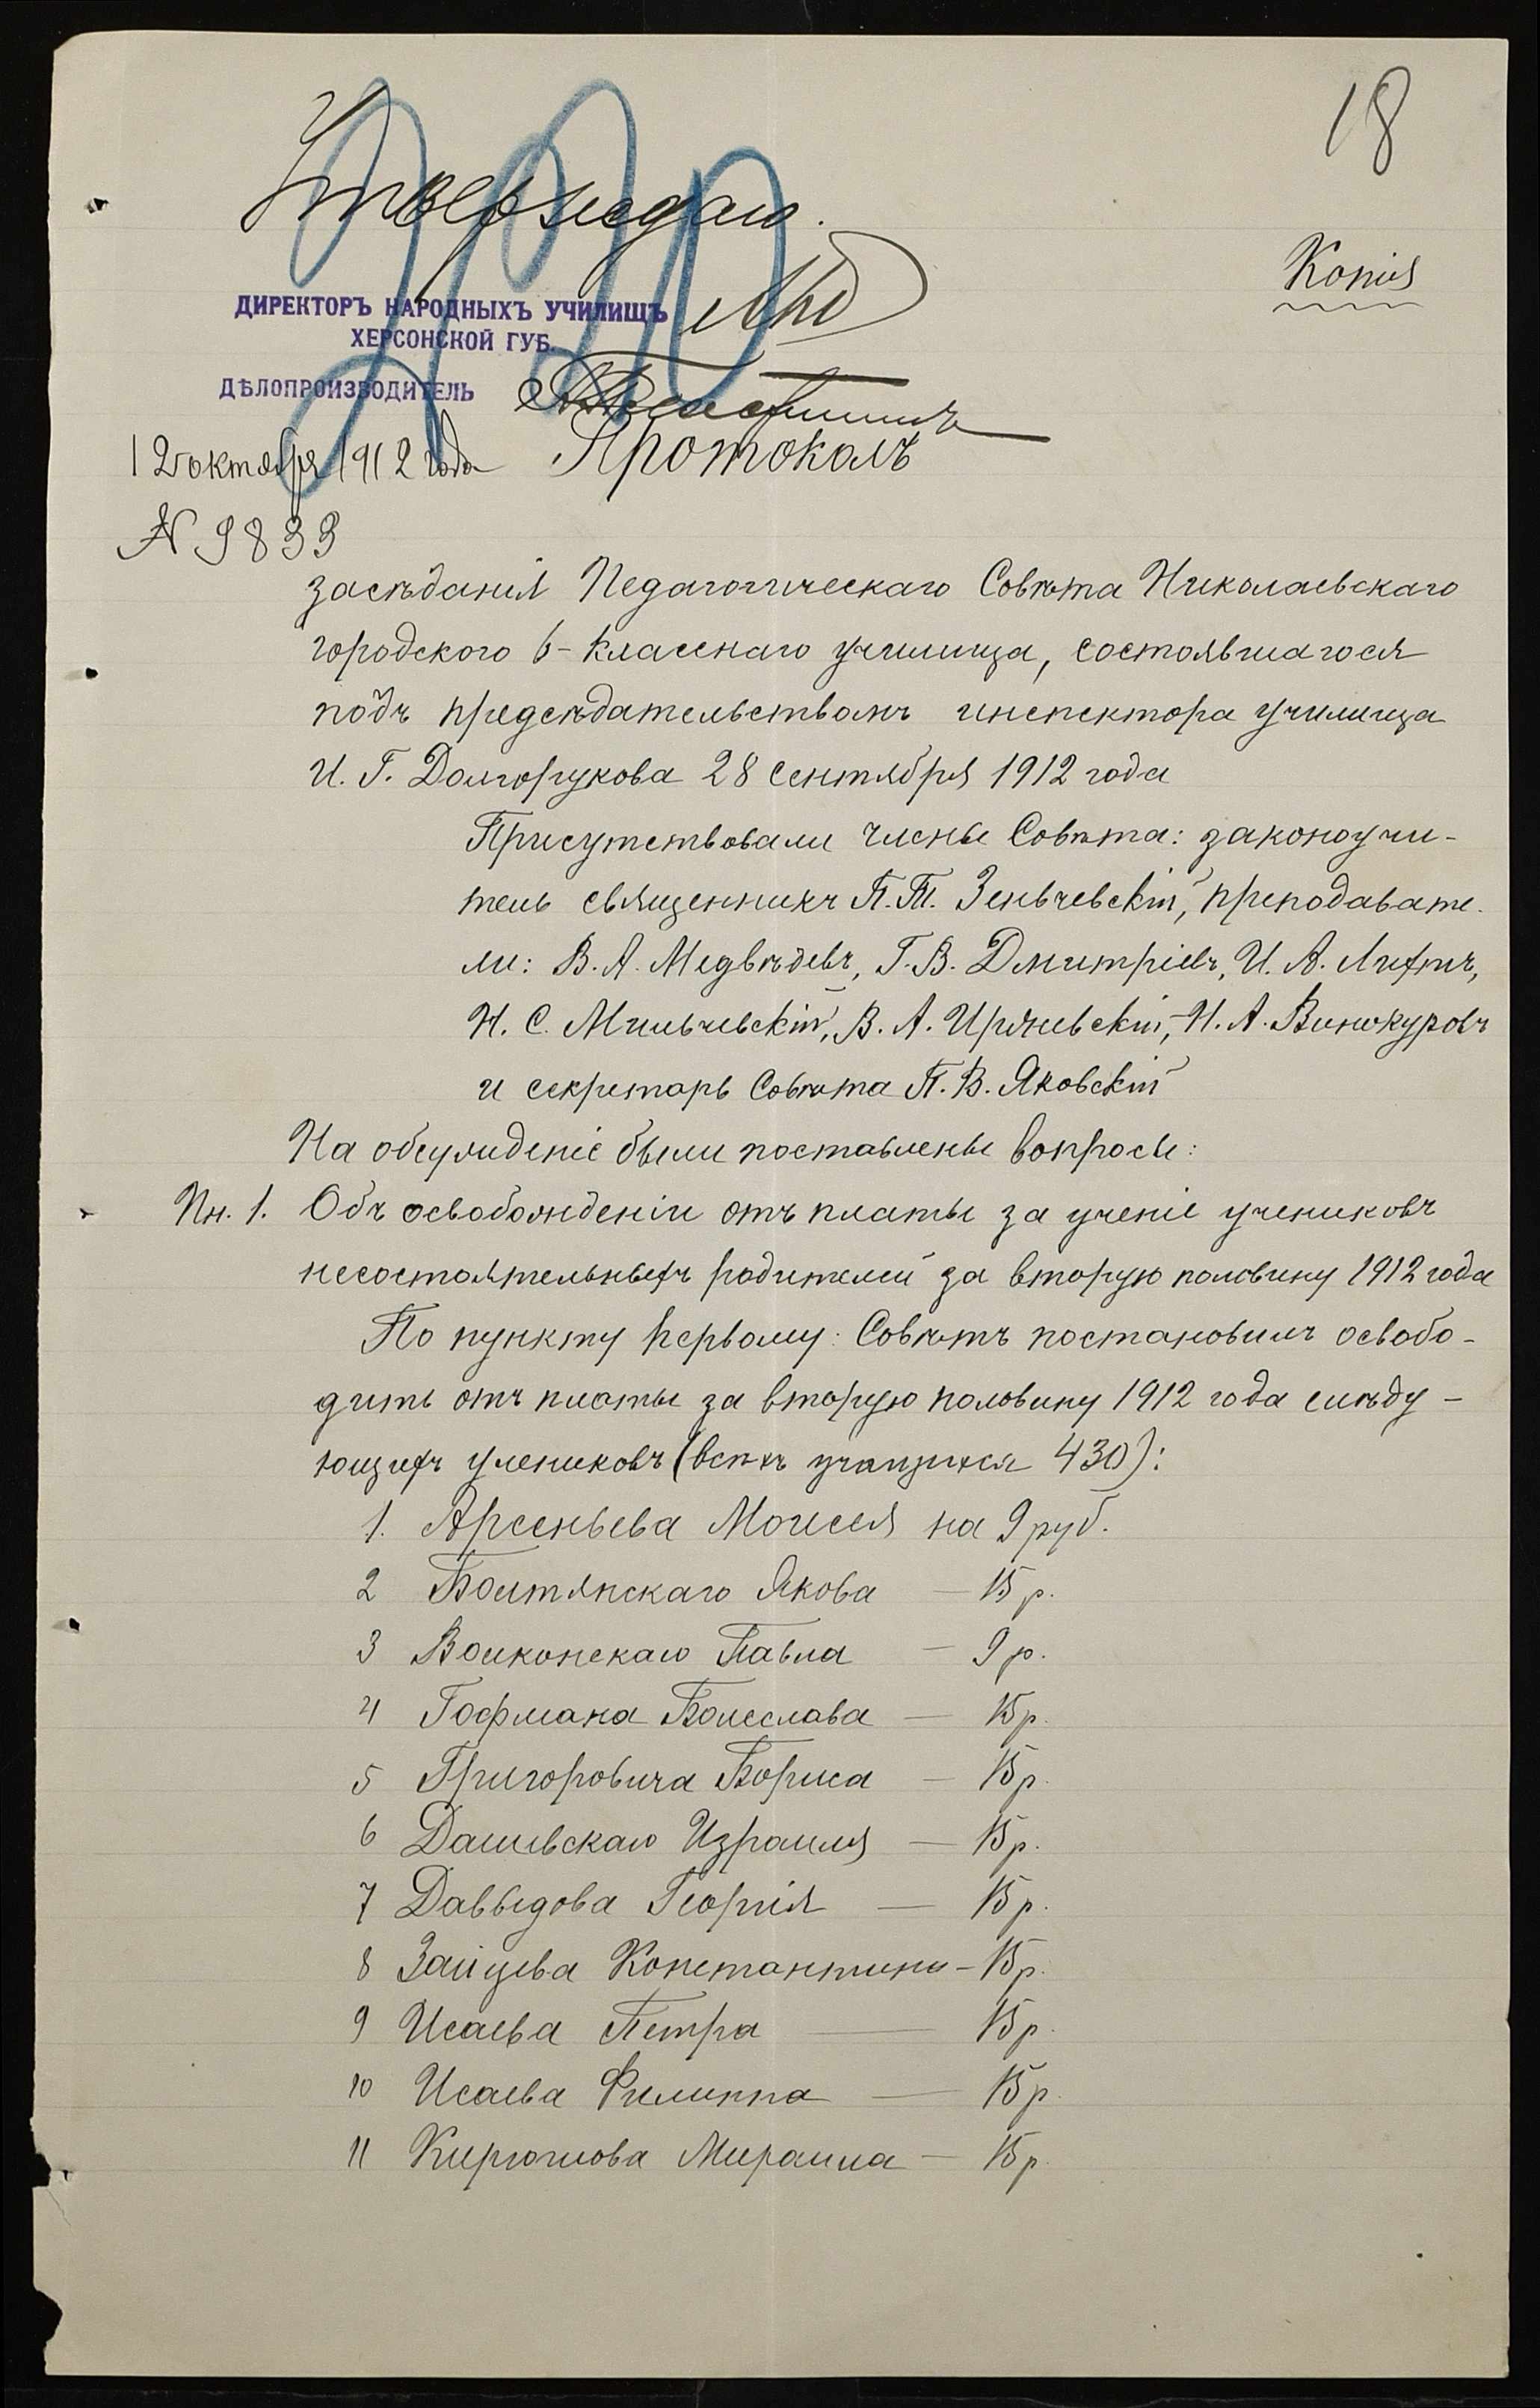 18
Утверждаю.
Копія
ДИРЕКТОРЪ НАРОДНЫХЪ УЧИЛИЩЪ
ХЕРСОНСКОЙ ГУБ.
ДѢЛОПРОИЗВОДИТЕЛЬ
12 октября 1912 года Протоколъ
№ 9833
засѣданія Педагогическаго Совѣта Николаевскаго
городского 6-класснаго училища, состоявшагося
подъ предсѣдательствомъ инспектора училища
И. Г. Долгорукова 28 сентября 1912 года
Присутствовали члены Совѣта: законоучи-
тель священникъ П. П. Зеньчевскій, преподавате-
ли: В. А. Медвѣдевъ, Г. В. Дмитріевъ, И. А. Лифтъ,
Н. С. Мильчевскій, В. А. Н. А. Винокуровъ
и секретарь Совѣта П. В. Яковскій
На обсужденіе были поставлены вопросы:
Пн. 1. Объ освобожденіи отъ платы за ученіе учениковъ
несостоятельныхъ родителей за вторую половину 1912 года
По пункту первому: Совѣтъ постановилъ освобо-
дить отъ платы за вторую половину 1912 года слѣду-
ющихъ учениковъ (всѣхъ учащихся 430):
1. Арсеньева Моисея на 9 руб.
2 Болтянскаго Якова — 15 р.
3 Волконскаго Павла — 9 р.
4 Гофмана Болеслава — 15 р.
5 Григоровича Бориса — 15 р.
6 Дашевскаго Израиля — 15 р.
7 Давыдова Георгія — 15 р.
8 Зайцева Константина — 15 р.
9 Исаева Петра — 15 р.
10 Исаева Филиппа — 15 р.
11 Кирюшова Михаила — 15 р.